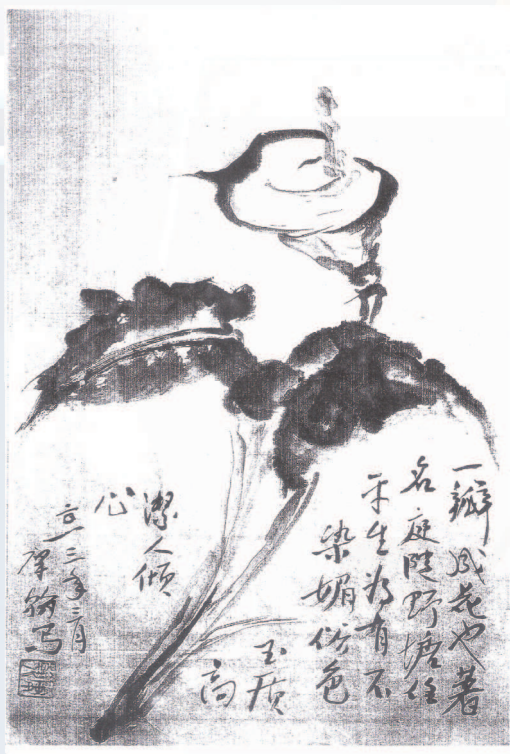 一瓣成花也著
名庭野塘任
平生为有不
染媚俗色
玉质
高
潔人倾
心
二〇一三年三月
写